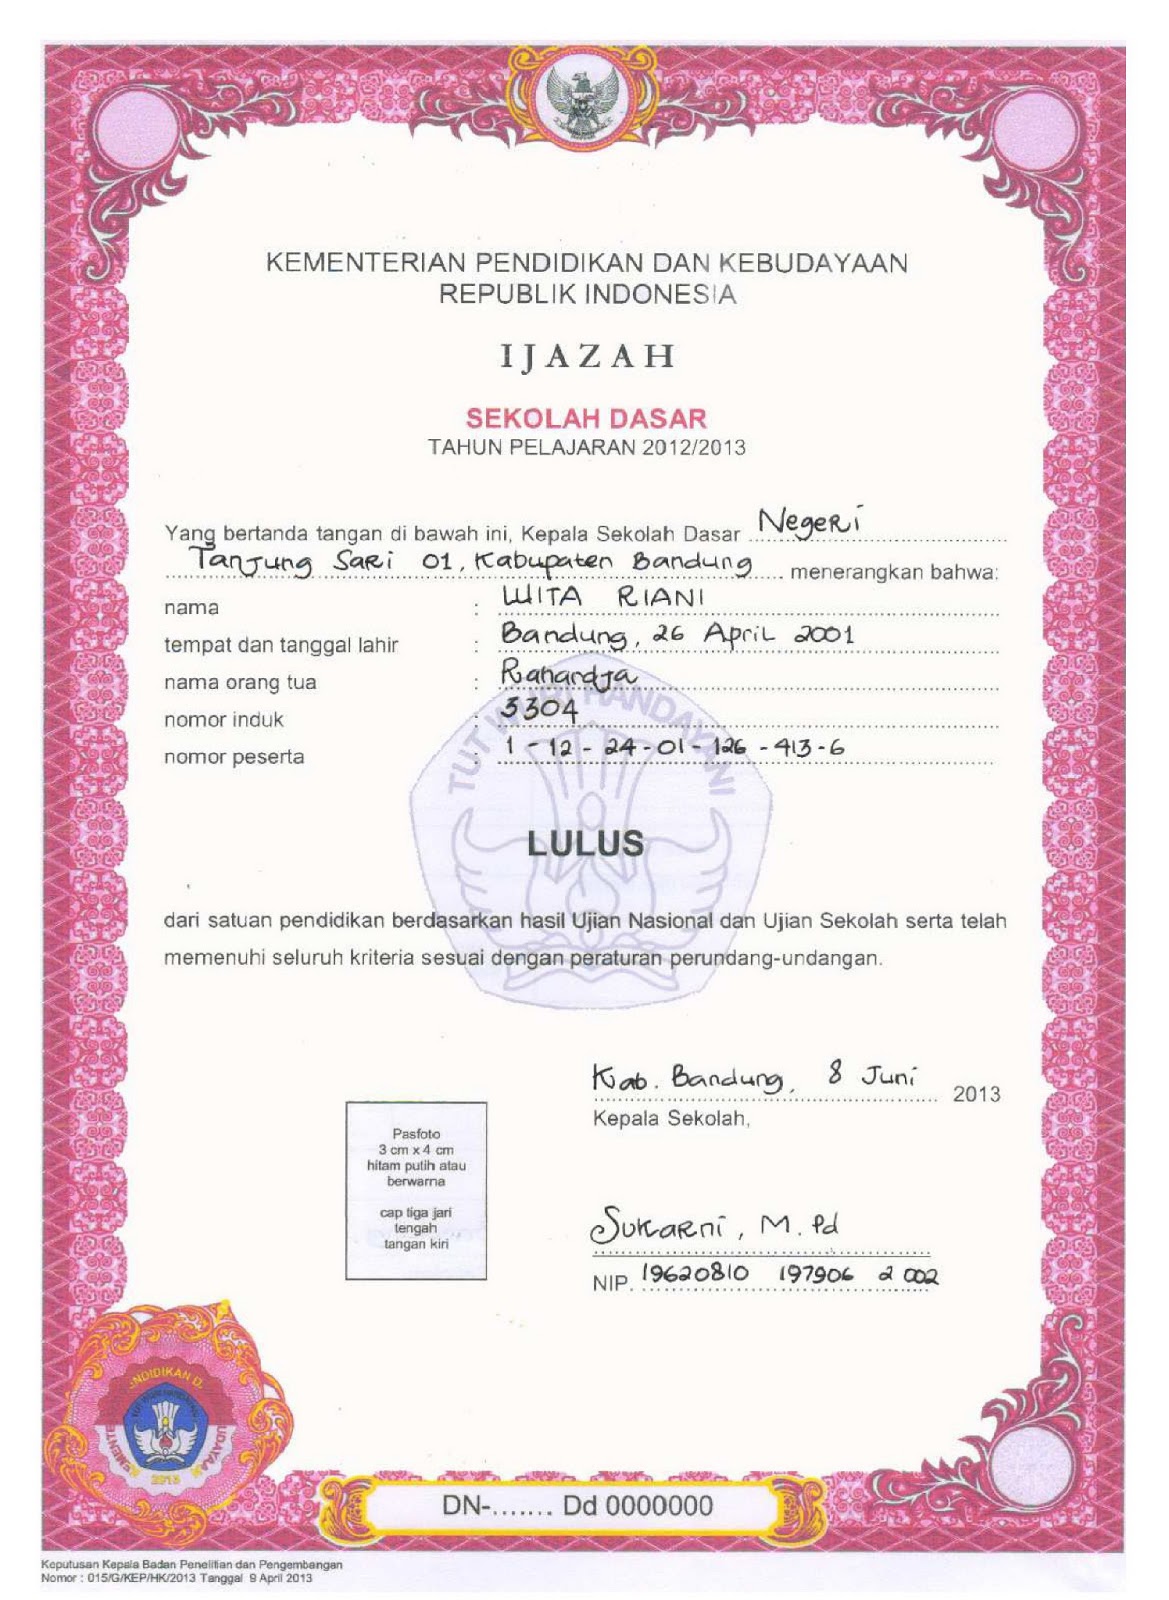 KEMENTERIAN PENDIDIKAN DAN KEBUDAYAAN
REPUBLIK INDONESIA
IJAZAH
SEKOLAH DASAR
TAHUN PELAJARAN 2012/2013
Yang bertanda tangan di bawah ini, Kepala Sekolah Dasar Negeri
Tanjung Sari 01, Kabupaten Bandung menerangkan bahwa:
nama : WITA RIANI
tempat dan tanggal lahir : Bandung, 26 April 2001
nama orang tua : Rahardja
nomor induk : 3304
nomor peserta : 1 - 12 - 24 - 01 - 126 - 413 - 6
TUT WURI HANDAYANI
LULUS
dari satuan pendidikan berdasarkan hasil Ujian Nasional dan Ujian Sekolah serta telah
memenuhi seluruh kriteria sesuai dengan peraturan perundang-undangan.
Kab. Bandung, 8 Juni 2013
Kepala Sekolah,
Pasfoto
3 cm x 4 cm
hitam putih atau
berwarna
cap tiga jari
tengah
tangan kiri
Sukarni, M.Pd
NIP. 19620810 197906 2 002
2013
DN-....... Dd 0000000
Keputusan Kepala Badan Penelitian dan Pengembangan
Nomor : 015/G/KEP/HK/2013 Tanggal 9 April 2013